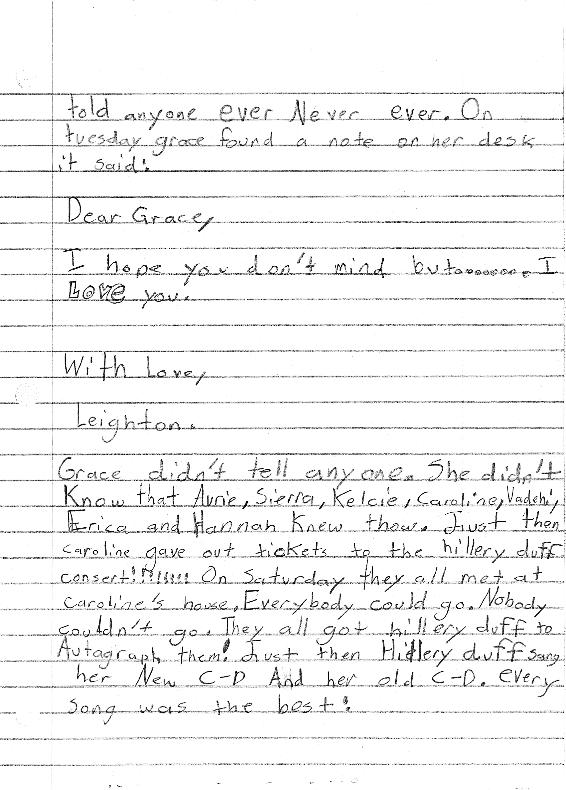 told anyone ever Never ever. On
tuesday grace found a note on her desk
it said:
Dear Grace,
I hope you don't mind but........ I
LOVE you.
With Love,
Leighton.
Grace didn't tell anyone. She didn't
Know that Avrie, Sierra, Kelcie, Caroline, Vadehi,
Erica and Hannah Knew thow. Just then
Caroline gave out tickets to the hillery duff
consert!!!!!!!! On Saturday they all met at
Caroline's house, Everybody could go. Nobody
couldn't go. They all got hillery duff to
Autagraph them! Just then Hillery duff sang
her New C-D And her old C-D. every
song was the best!